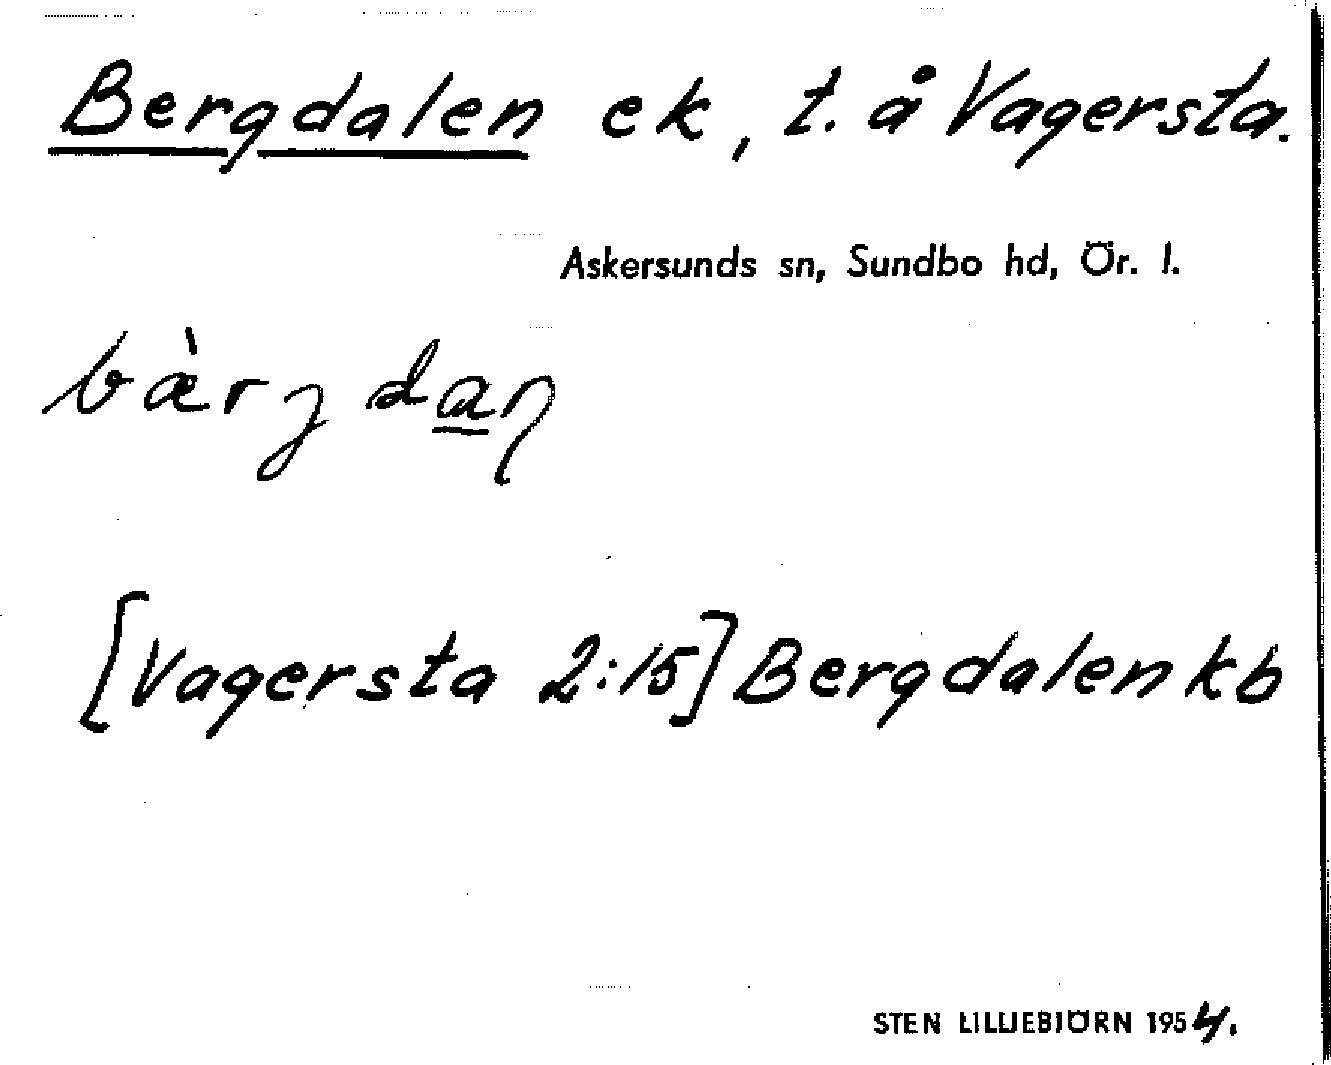 Bergdalen ek, t. å Vagersta.
Askersunds sn, Sundbo hd, Ör. l.
bæ̀rȷ da̲ɳ
[Vagersta 2:15] Bergdalen kb
STEN LILLIEBJÖRN 1954.